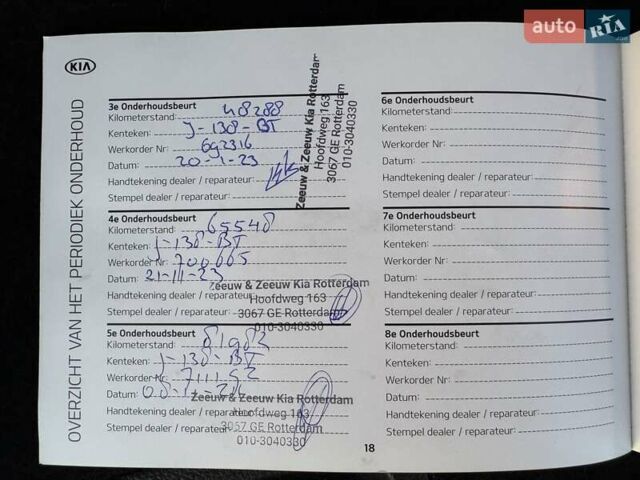 auto RIA .com
KIA
OVERZICHT VAN HET PERIODIEK ONDERHOUD
3e Onderhoudsbeurt
Kilometerstand: 48288
Kenteken: J-138-BT
Werkorder Nr: 692316
Datum: 20-1-23
Handtekening dealer / reparateur:
Stempel dealer / reparateur:
Zeeuw & Zeeuw Kia Rotterdam
Hoofdweg 163
3067 GE Rotterdam
010-3040330
4e Onderhoudsbeurt
Kilometerstand: 65548
Kenteken: J-138-BT
Werkorder Nr: 700665
Datum: 21-11-23
Handtekening dealer / reparateur:
Stempel dealer / reparateur:
Zeeuw & Zeeuw Kia Rotterdam
Hoofdweg 163
3067 GE Rotterdam
010-3040330
5e Onderhoudsbeurt
Kilometerstand: 81982
Kenteken: J-138-BT
Werkorder Nr: 711152
Datum:
Handtekening dealer / reparateur:
Stempel dealer / reparateur:
Zeeuw & Zeeuw Kia Rotterdam
Hoofdweg 163
3067 GE Rotterdam
010-3040330
6e Onderhoudsbeurt
Kilometerstand:
Kenteken:
Werkorder Nr:
Datum:
Handtekening dealer / reparateur:
Stempel dealer / reparateur:
7e Onderhoudsbeurt
Kilometerstand:
Kenteken:
Werkorder Nr:
Datum:
Handtekening dealer / reparateur:
Stempel dealer / reparateur:
8e Onderhoudsbeurt
Kilometerstand:
Kenteken:
Werkorder Nr:
Datum:
Handtekening dealer / reparateur:
Stempel dealer / reparateur:
18